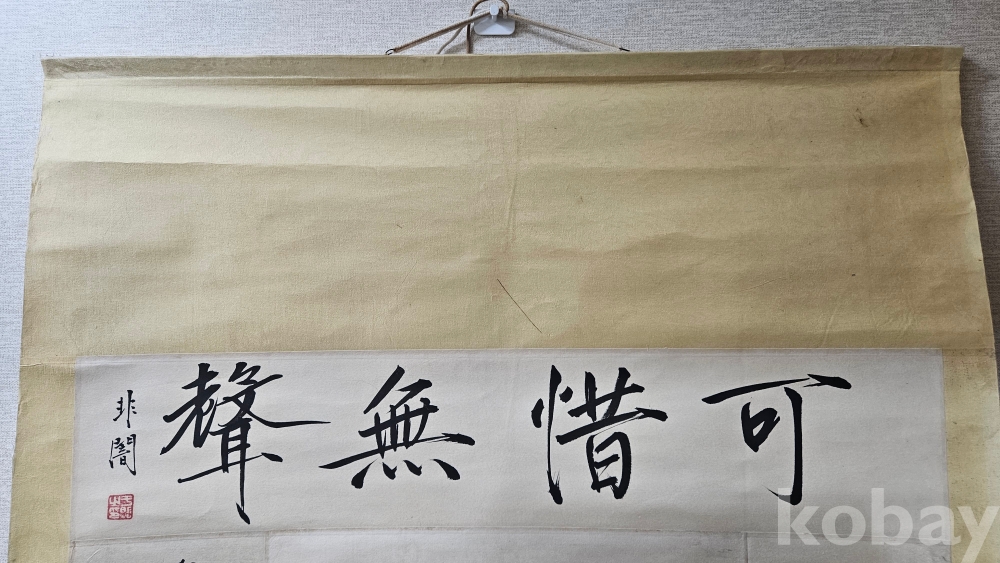 可惜無聲
非闇
kobay